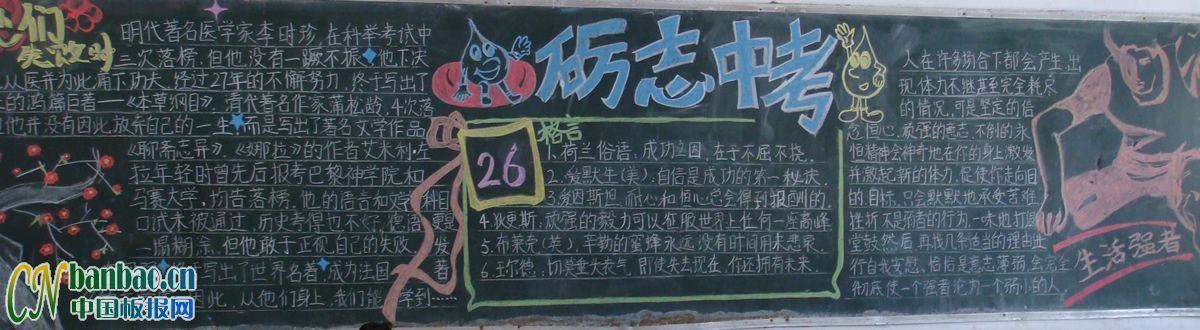 们
失败时
明代著名医学家李时珍,在科举考试中
三次落榜,但他没有一蹶不振。他下决
从医并为此痛下功夫,经过27年的不懈努力,终于写出了
的鸿篇巨著——《本草纲目》,清代著名作家蒲松龄,4次落
他并没有因此放弃自己的一生,而是写出了著名文学作品
《聊斋志异》,《娜拉》的作者艾米利·左
拉年轻时曾先后报考巴黎神学院和
马赛大学,均告落榜,他的语言和文学科目
口试未被通过,历史考得也不好,德语更是
一塌糊涂,但他敢于正视自己的失败,发
写出了世界名著,成为法国 著
因此,从他们身上,我们能 学到……
砺志中考
格言
26
1.荷兰俗语:成功之因,在于不屈不挠。
2.爱默生(美):自信是成功的第一秘诀。
3.爱因斯坦:耐心和恒心总会得到报酬的。
4.狄更斯:顽强的毅力可以征服世界上任何一座高峰
5.布莱克(英):辛勤的蜜蜂永远没有时间用来悲哀。
6.王尔德:切莫垂头丧气,即使失去现在,你还拥有未来。
人在许多场合下都会产生出
现体力不继甚至完全耗尽
的情况,可是坚定的信
念、恒心、顽强的意志、不倒的永
恒精神会神奇地在你的身上激发
并燃起新的体力,促使你走向目
的目标,只会默默地承受苦难
挫折不是弱者的行为,一味地打退
堂鼓,然后再找几条适当的理由进
行自我安慰,恰恰是意志薄弱,会完全
彻底使一个强者沦为一个弱小的人。
生活强者
CN banbao.cn
中国板报网